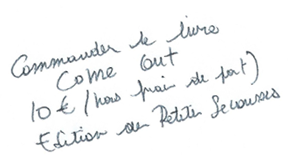 Commander le livre
Come Out
10 € (hors frais de port)
Edition des Petites Secousses